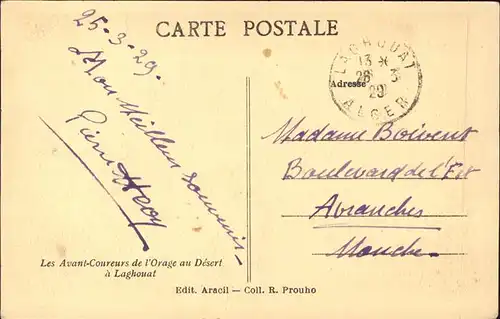 CARTE POSTALE
25-3-29.
Mon Meilleur souvenir
Pierre
Les Avant-Coureurs de l'Orage au Désert
à Laghouat
LAGHOUAT
13 *
26 3
29
ALGER
Adresse
Madame Boivent
Boulevard de l'Est
Avranches
Manche.
Edit. Aracil — Coll. R. Prouho